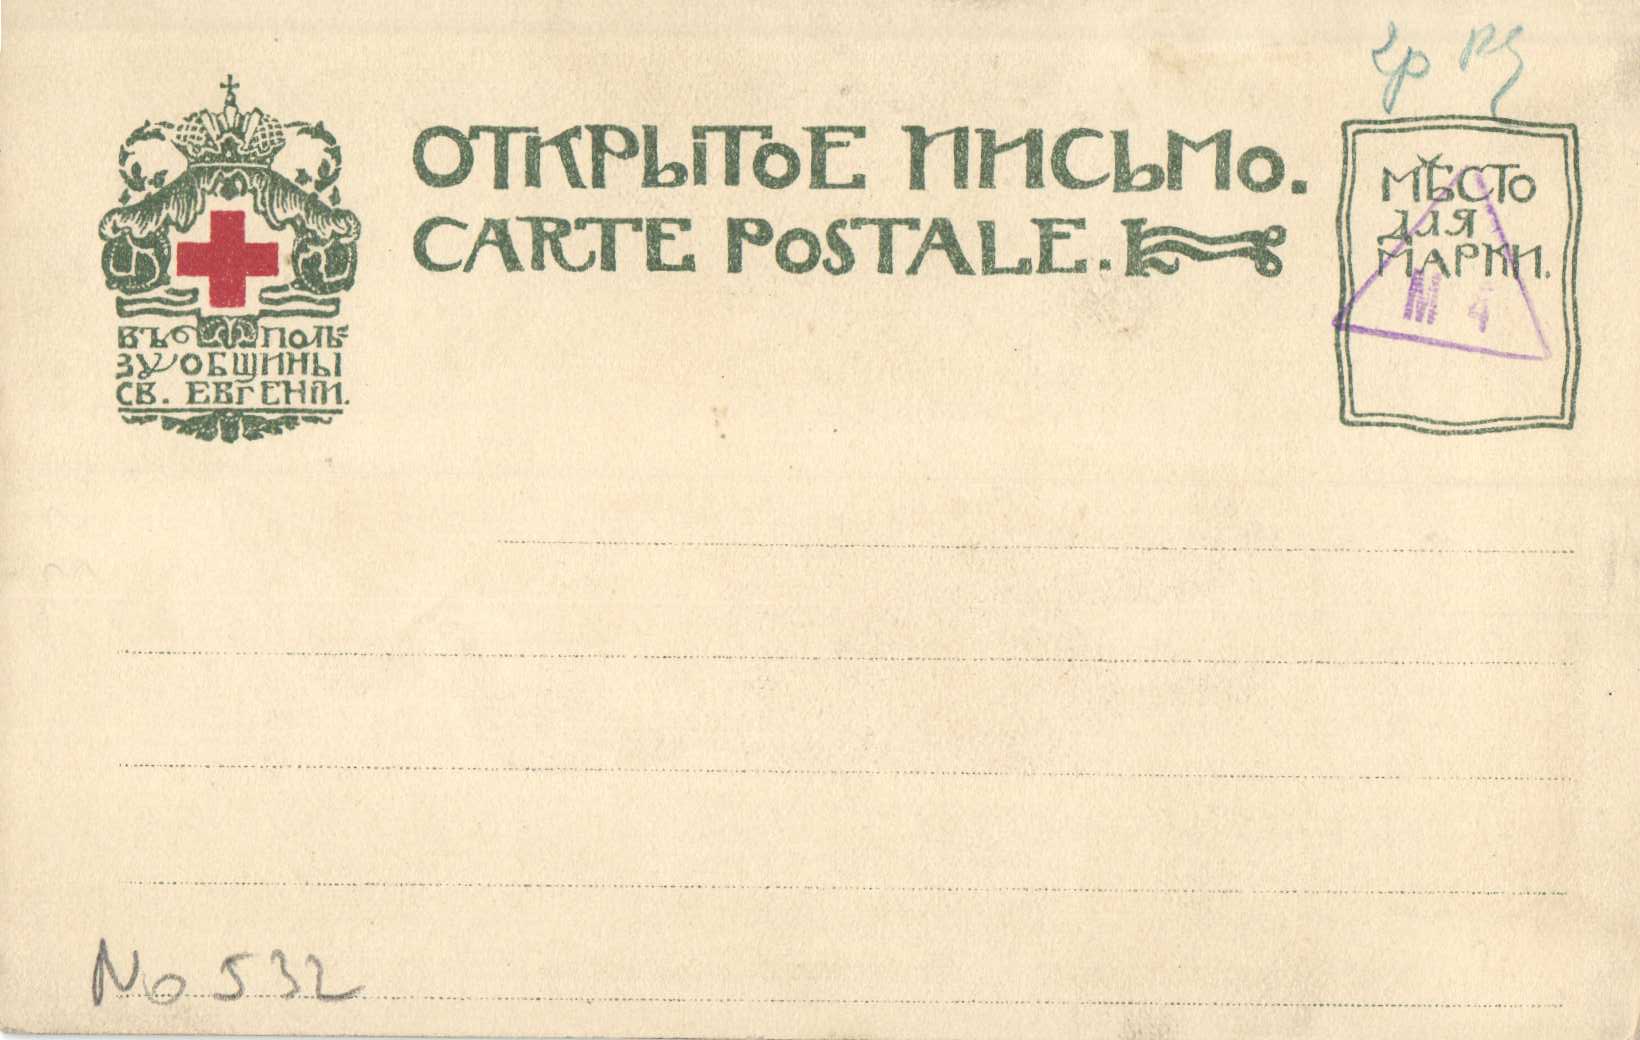 ОТКРЫТОЕ ПИСЬМО.
CARTE POSTALE.
МѢСТО
ДЛЯ
МАРКИ.
ВЪ ПОЛЬ=
ЗУ ОБЩИНЫ
СВ. ЕВГЕНІИ.
No 532